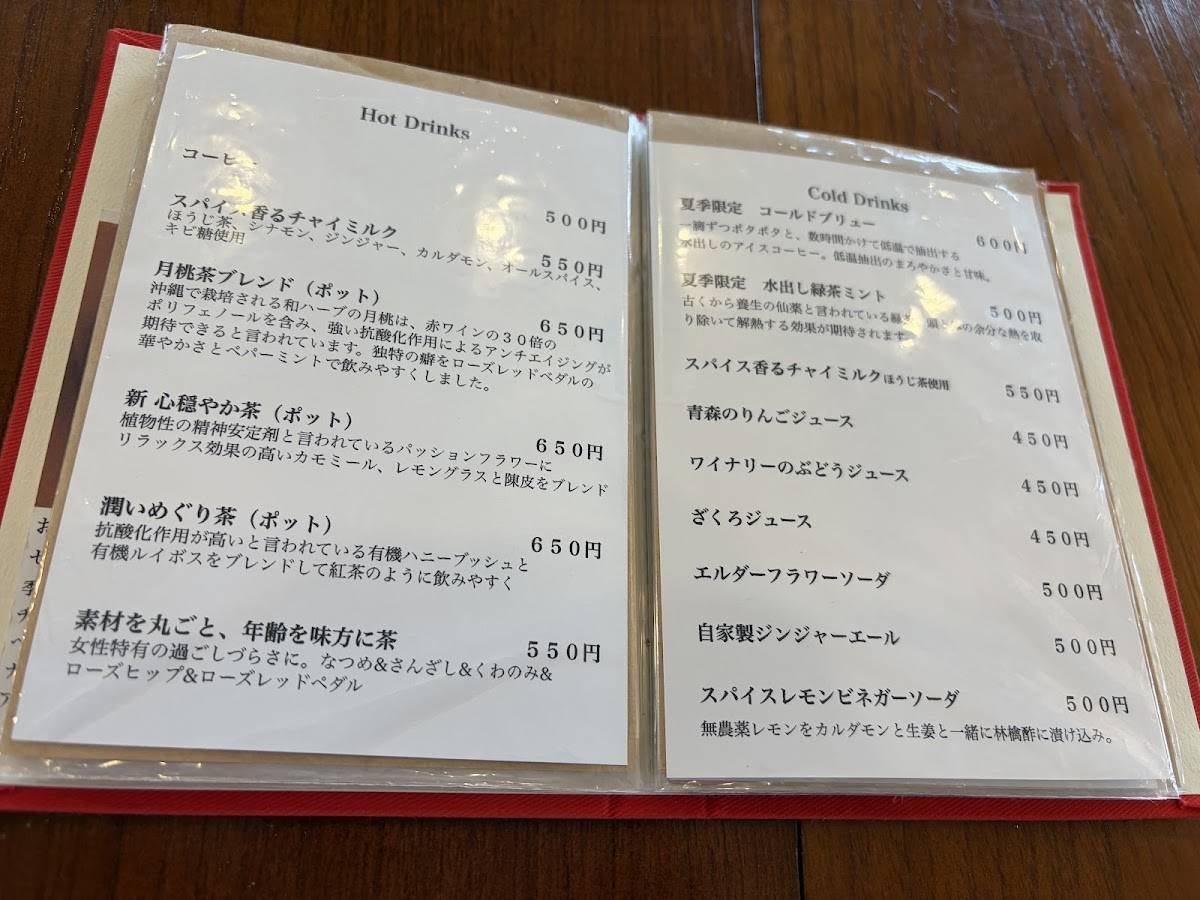 Hot Drinks
コーヒー
500円
スパイス香るチャイミルク
550円
ほうじ茶、シナモン、ジンジャー、カルダモン、オールスパイス、
キビ糖使用
月桃茶ブレンド（ポット）
650円
沖縄で栽培される和ハーブの月桃は、赤ワインの３０倍の
ポリフェノールを含み、強い抗酸化作用によるアンチエイジングが
期待できると言われています。独特の癖をローズレッドペダルの
華やかさとペパーミントで飲みやすくしました。
新 心穏やか茶（ポット）
650円
植物性の精神安定剤と言われているパッションフラワーに
リラックス効果の高いカモミール、レモングラスと陳皮をブレンド
潤いめぐり茶（ポット）
650円
抗酸化作用が高いと言われている有機ハニーブッシュと
有機ルイボスをブレンドして紅茶のように飲みやすく
素材を丸ごと、年齢を味方に茶
550円
女性特有の過ごしづらさに。なつめ&さんざし&くわのみ&
ローズヒップ&ローズレッドペダル
Cold Drinks
夏季限定　コールドブリュー
600円
一滴ずつポタポタと、数時間かけて低温で抽出する
水出しのアイスコーヒー。低温抽出のまろやかさと甘味。
夏季限定　水出し緑茶ミント
500円
古くから養生の仙薬と言われている緑 の余分な熱を取
り除いて解熱する効果が期待されます
スパイス香るチャイミルクほうじ茶使用
550円
青森のりんごジュース
450円
ワイナリーのぶどうジュース
450円
ざくろジュース
450円
エルダーフラワーソーダ
500円
自家製ジンジャーエール
500円
スパイスレモンビネガーソーダ
500円
無農薬レモンをカルダモンと生姜と一緒に林檎酢に漬け込み。
お
セ
季
チ
ペ
ナ
ア